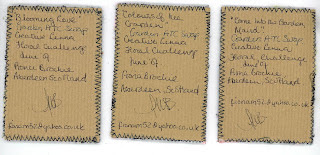 "Blooming Love"
Garden ATC Swap
Creative Cinna
Floral Challenge
June 09
Fiona Brockie
Aberdeen Scotland
fionam52@yahoo.co.uk
Colours of the
Garden
Garden ATC Swap
Creative Cinna
Floral Challenge
June 09
Fiona Brockie
Aberdeen Scotland
fionam52@yahoo.co.uk
"Come into the Garden,
Maud"
Garden ATC Swap
Creative Cinna
Floral Challenge
June 09
Fiona Brockie
Aberdeen Scotland
fionam52@yahoo.co.uk